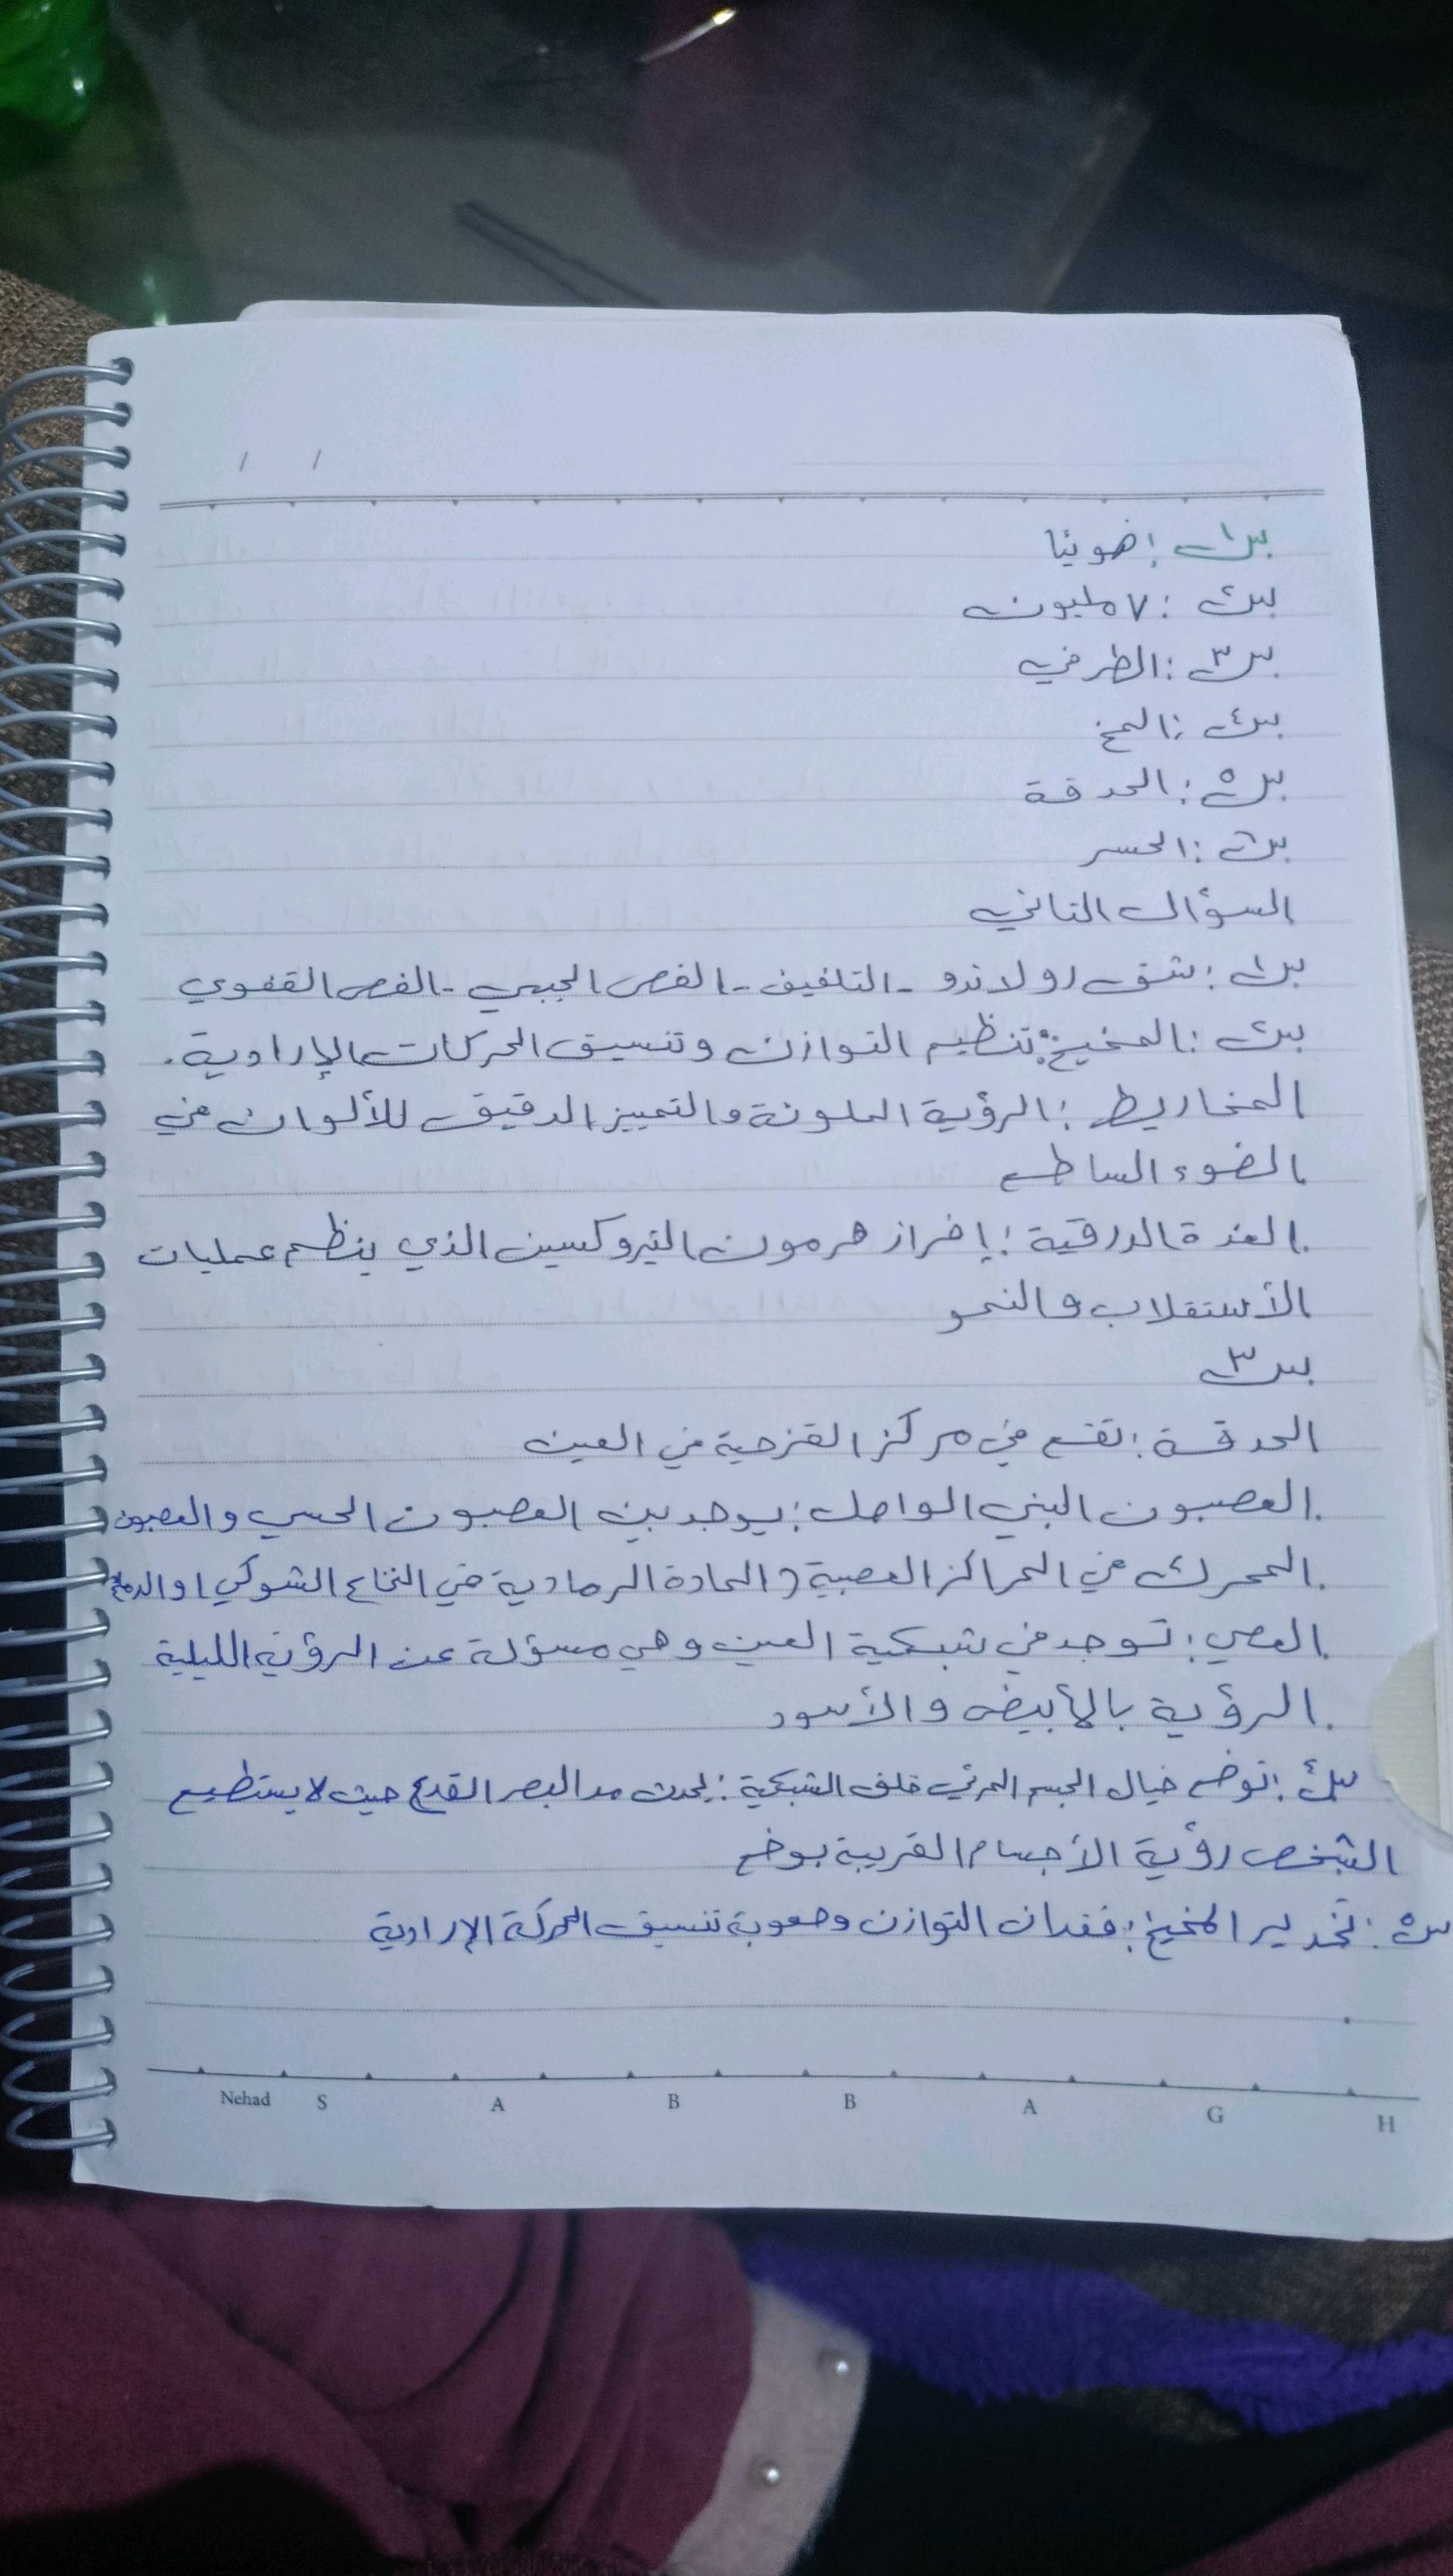 / /
س١ : ضوئيا
س٢ : ٧ مليون
س٣ : الطرفي
س٤ : المخ
س٥ : الحدقة
س٦ : الحسر
السؤال الثاني
س١ : شق رولاندو - التلفيف - الفص الجبهي - الفص القفوي
س٢ : المخيخ : تنظيم التوازن وتنسيق الحركات الإرادية.
المخاريط : الرؤية الملونة والتمييز الدقيق للألوان في
الضوء الساطع
الغدة الدرقية : إفراز هرمون التيروكسين الذي ينظم عمليات
الأستقلاب والنمو
س٣
الحدقة : تقع في مركز القزحية في العين
العصبون البني الواصل : يوجد بين العصبون الحسي والعصبون
المحرك في المراكز العصبية (المادة الرمادية في النخاع الشوكي او الدماغ
العصي : توجد في شبكية العين وهي مسؤلة عن الرؤية الليلية
الرؤية بالأبيض والأسود
س٤ : توضع خيال الجسم المرئي خلف الشبكية : يحدث مد البصر القدع حيث لا يستطيع
الشخص رؤية الأجسام القريبة بوضع
س٥ : تخدير المخيخ : فقدان التوازن وصعوبة تنسيق الحركة الإرادية
Nehad S A B B A G H